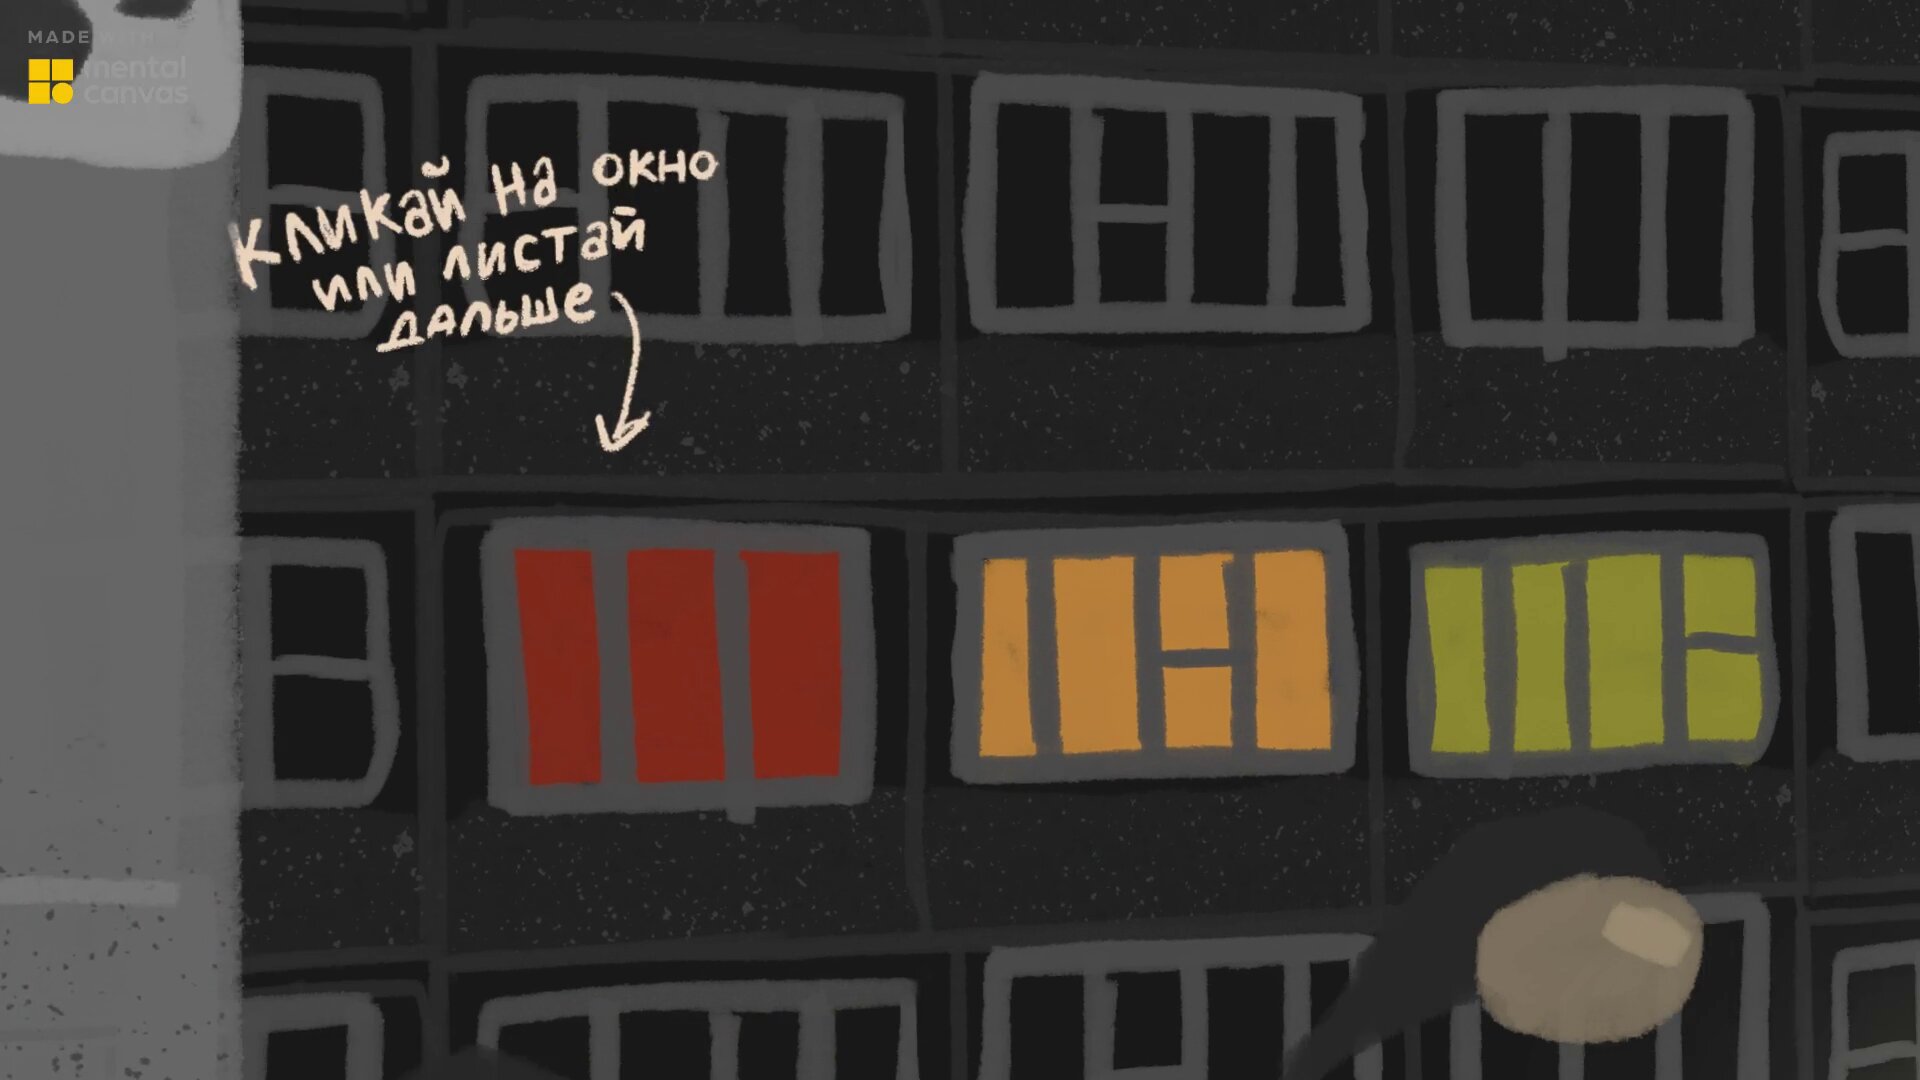 MADE WITH
mental
canvas
кликай на окно
или листай
дальше